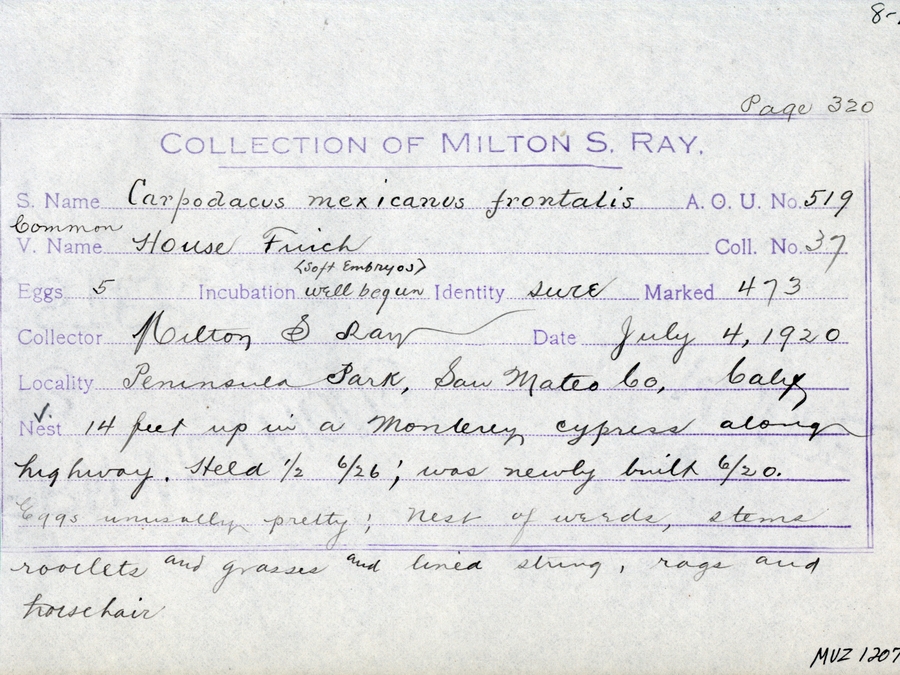 8-
Page 320
COLLECTION OF MILTON S. RAY.
S. Name Carpodacus mexicanus frontalis A. O. U. No. 519
Common
V. Name House Finch Coll. No. 37
(Soft Embryos)
Eggs 5 Incubation well begun Identity sure Marked 473
Collector Milton S Ray Date July 4, 1920
Locality Peninsula Park, San Mateo Co, Calif
Nest 14 feet up in a Monterey cypress along
highway. Held 1/2 6/26; was newly built 6/20.
Eggs unusually pretty; nest of weeds, stems
rootlets and grasses and lined string, rags and
horsehair
MUZ 1207